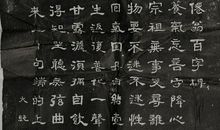 百字碑
養氣忘言守降心
宗祖無事更尋
物要不迷不迷性
回氣回丹自結壺
生返復普化一聲
甘露灑須彌自飲
得知坐聽無弦曲
來二十句端的上